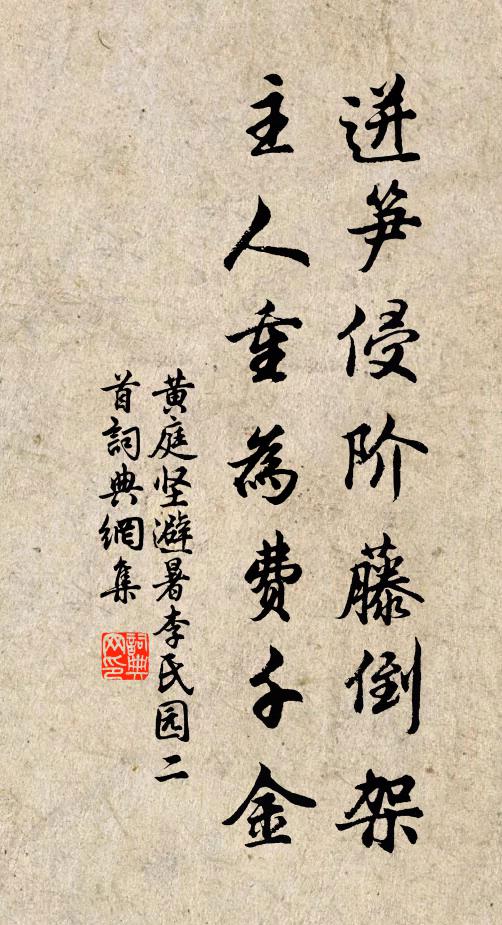 迸笋侵阶藤倒架
主人重為费千金
黄庭坚避暑李氏园二
首詞典網集
詞典网印